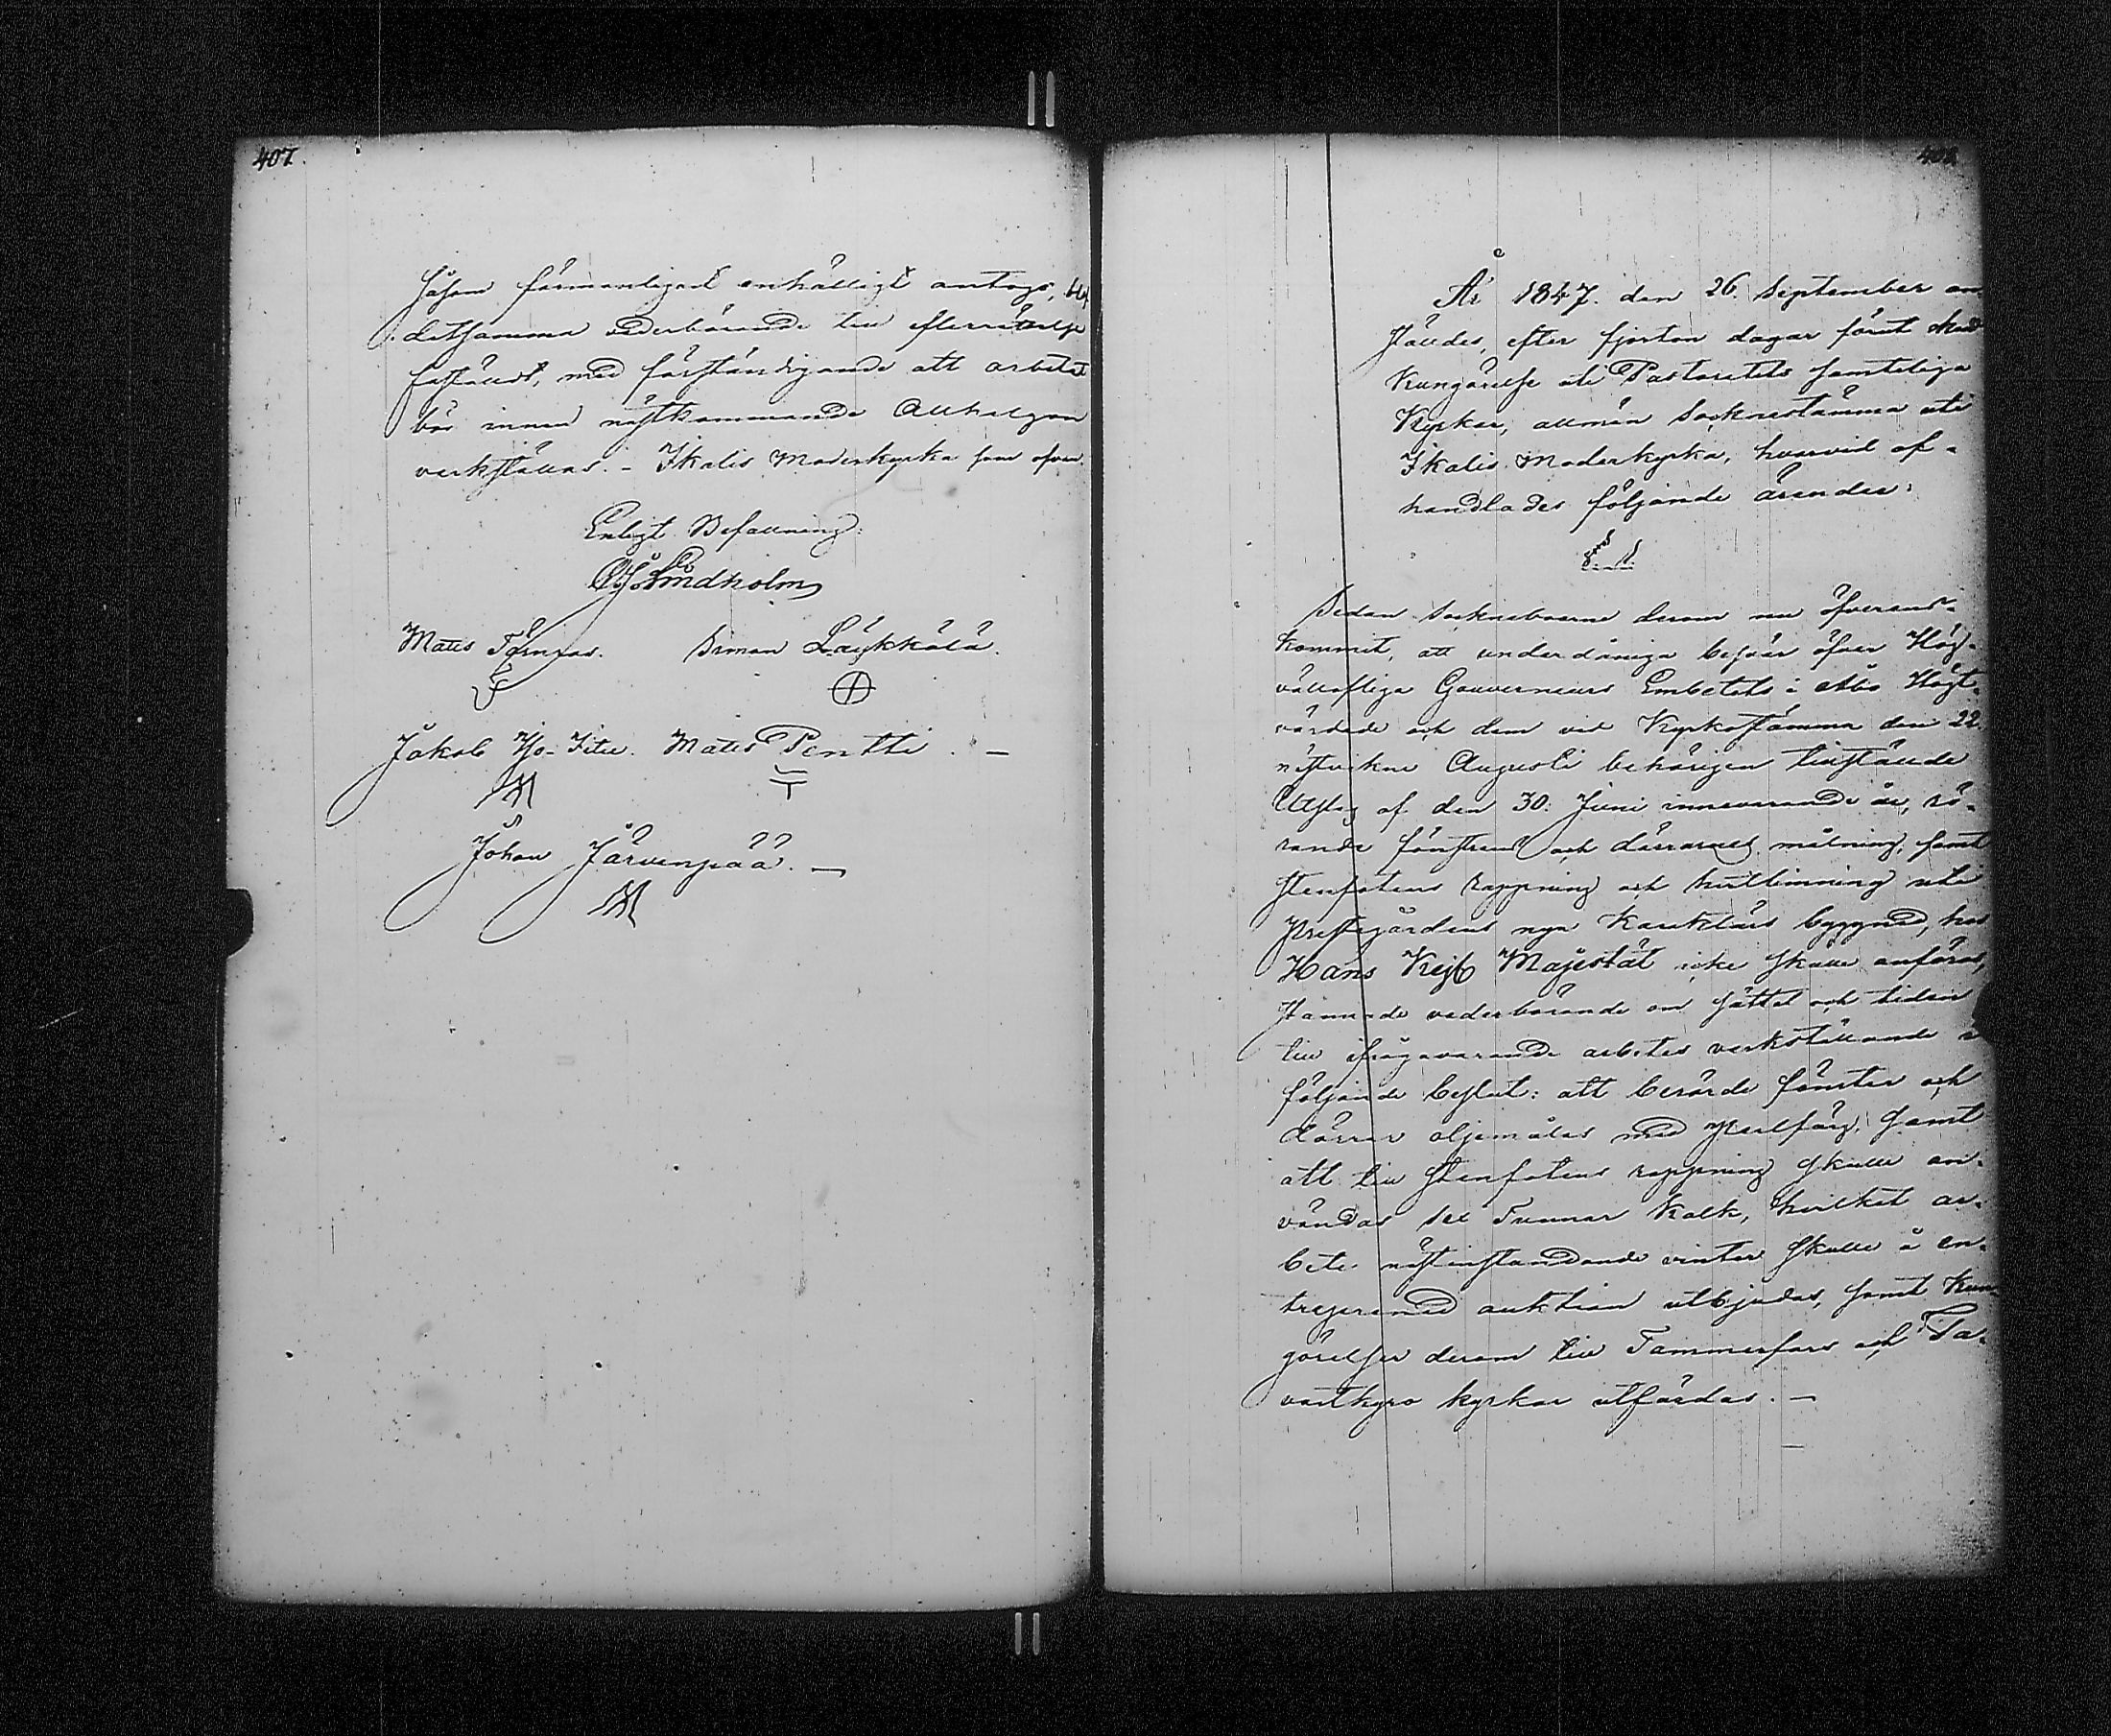 407.
såsom förmånligast enhälligt antogs,
detsamma vederbörande till efterrättelse
fastställdt, med förständigande att arbetet
bör innan nästkommande Allhelgon
verkställas. - Ikalis Moderkyrka som ofvan.
Enligt Befallning:
Lindholm
Matts Simon Läykkälä.
Jakob Yjo-Iitu. Matts Pentti. —
Johan Järvenpää. —
408
År 1847. den 26. September an-
ställdes, efter fjorton dagar förut skedd
Kungörelse uti Pastoratets samteliga
Kyrkor, allmän Socknestämma uti
Ikalis Moderkyrka, hvarvid af-
handlades följande ärender:
§. 1.
Sedan Sockneboarne derom nu öfverens-
kommit, att underdåniga besvär öfver Hög-
vällofliga Gouverneurs Embetets i Åbo Högt-
värdade och dem vid Kyrkostämma den 22.
nästvikne Augusti behörigen tillställde
Utslag af den 30. Juni innevarande år, rö-
rande fönstrens och dörrarnes målning, samt
stenfotens rappning och hvitlimning uti
Prestegårdens nya Karaktärs byggnad, hos
Hans Kejs Majestät icke skulle anföras,
stannade vederbörande om sättet och tiden
till ifrågavarande arbetes verkställande i
följande beslut: att berörde fönster och
dörrar oljemålas med perlfärg, samt
att till stenfotens rappning skulle an-
vändas sex Tunnor Kalk, hvilket ar-
bete nästinstundande vinter skulle å en-
treprenad auktion utbjudas, samt Kun-
görelser derom till Tammerfors och Ta-
vastkyro kyrkor utfärdas. —